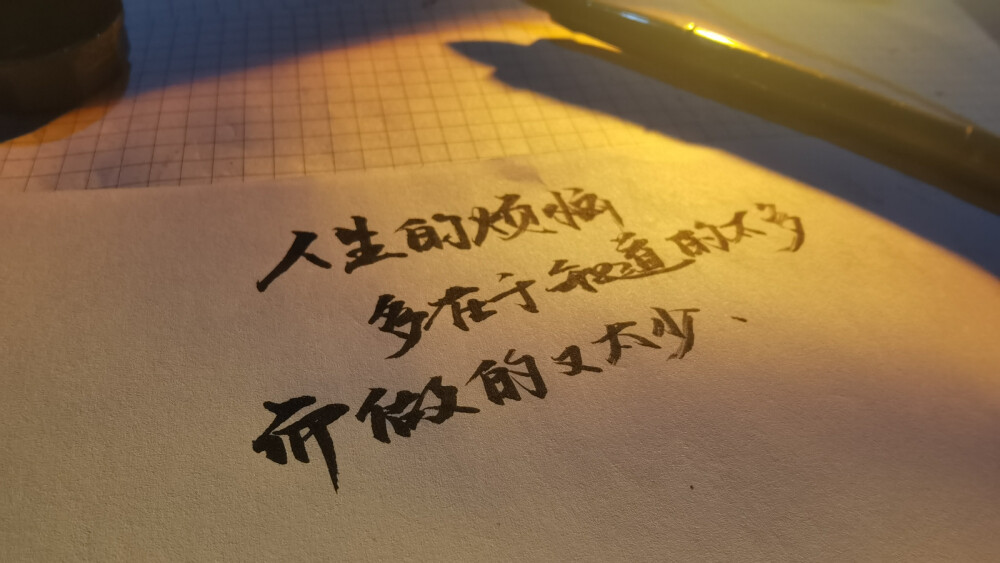 人生的烦恼
多在于知道的太多
而做的又太少、